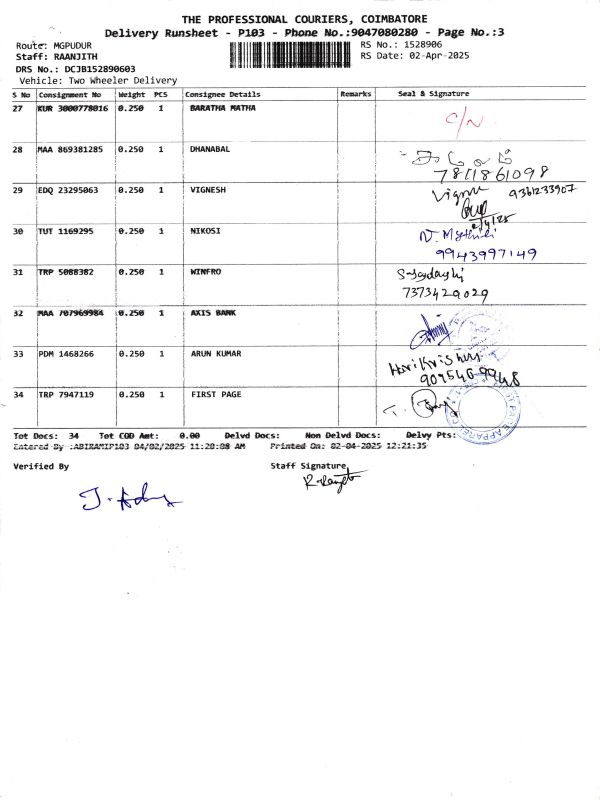 THE PROFESSIONAL COURIERS, COIMBATORE
Delivery Runsheet - P103 - Phone No.:9047080280 - Page No.:3
Route: MGPUDUR
RS No.: 1528906
Staff: RAANJITH
RS Date: 02-Apr-2025
DRS No.: DCJB152890603
Vehicle: Two Wheeler Delivery
S No Consignment No Weight PCS Consignee Details Remarks Seal & Signature
27 KUR 3000778016 0.250 1 BARATHA MATHA C/N
28 MAA 869381285 0.250 1 DHANABAL
7811861098
29 EDQ 23295063 0.250 1 VIGNESH 9361233907
2/4/25
30 TUT 1169295 0.250 1 NIKOSI
9943997149
31 TRP 5088382 0.250 1 WINFRO
7373429029
32 MAA 707969984 0.250 1 AXIS BANK
33 PDM 1468266 0.250 1 ARUN KUMAR Hari Krishna
34 TRP 7947119 0.250 1 FIRST PAGE
Tot Docs: 34 Tot COD Amt: 0.00 Delvd Docs: Non Delvd Docs: Delvy Pts:
Entered By :ABIRAMIP103 04/02/2025 11:20:08 AM Printed On: 02-04-2025 12:21:35
Verified By Staff Signature